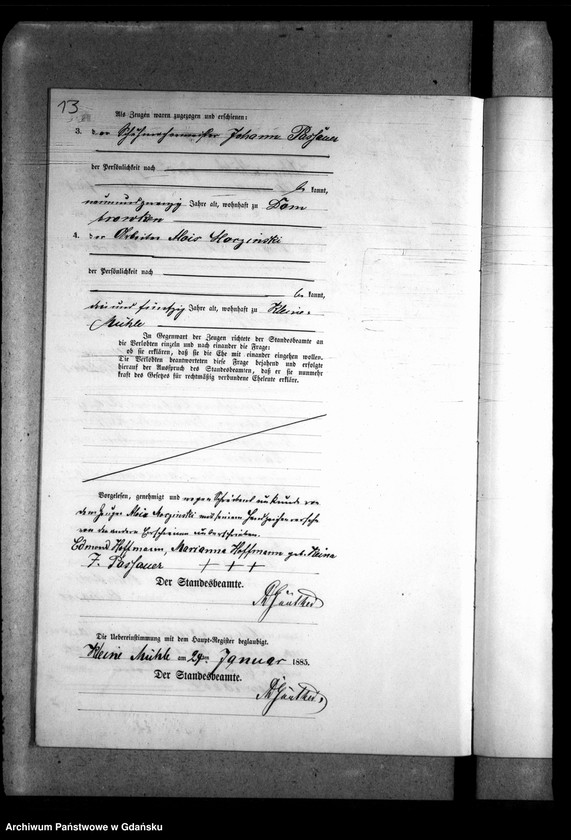 13
Als Zeugen waren zugezogen und erschienen:
3. der Schuhmachermeister Johann Passauer
der Persönlichkeit nach
be kannt,
neunundzwanzig Jahre alt, wohnhaft zu Dom
browken
4. der Arbeiter Alois
der Persönlichkeit nach
be kannt,
drei und fünfzig Jahre alt, wohnhaft zu Kleine
Mühle
In Gegenwart der Zeugen richtete der Standesbeamte an
die Verlobten einzeln und nach einander die Frage:
ob sie erklären, daß sie die Ehe mit einander eingehen wollen.
Die Verlobten beantworteten diese Frage bejahend und erfolgte
hierauf der Ausspruch des Standesbeamten, daß er sie nunmehr
kraft des Gesetzes für rechtmäßig verbundene Eheleute erkläre.
Vorgelesen, genehmigt und wegen Schreibensunkunde von
dem Zeugen Alois mit seinem Handzeichen versehen
von den anderen Erschienenen unterschrieben.
Edmond Hoffmann, Marianna Hoffmann geb. Kleina
J. Passauer + + +
Der Standesbeamte.
Die Uebereinstimmung mit dem Haupt-Register beglaubigt.
Kleine Mühle am 29ten Januar 1885.
Der Standesbeamte.
Archiwum Państwowe w Gdańsku